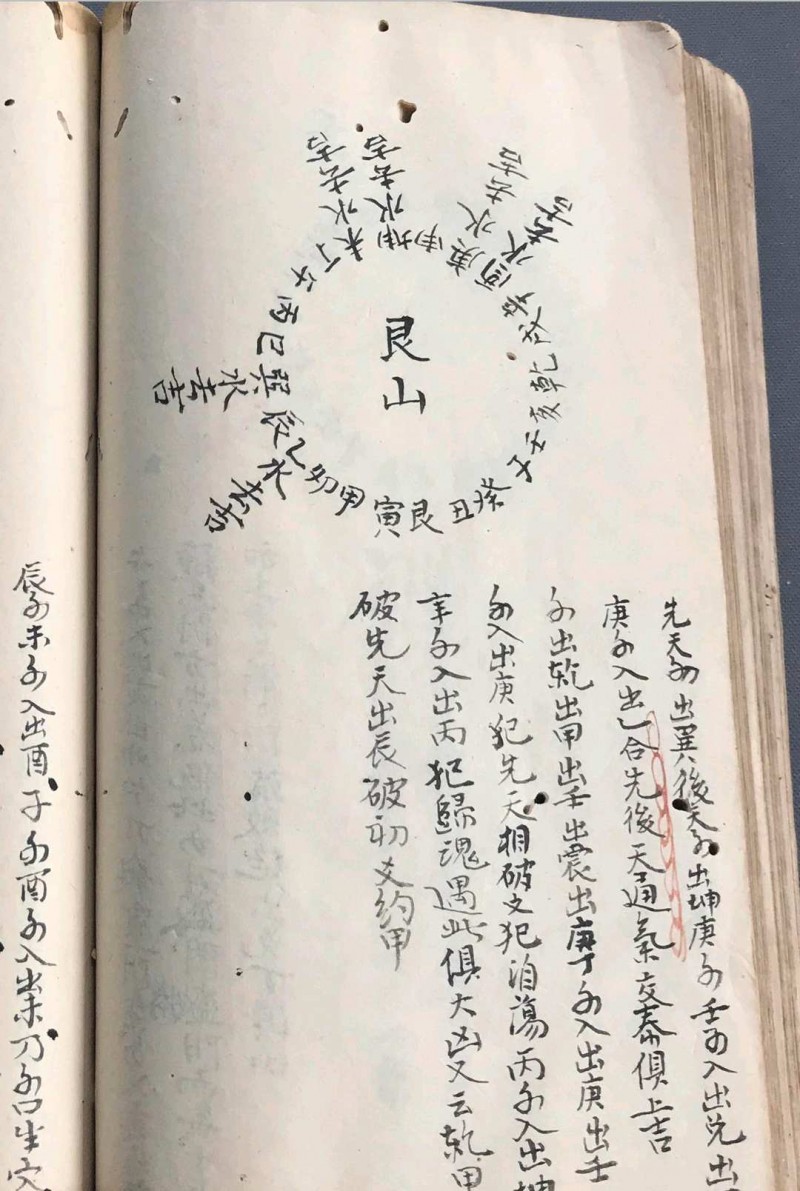 艮山
未水去吉
坤申水去吉
庚水去吉
酉水去吉
巽水去吉
乙辰水去吉
丁午丙巳
卯甲寅艮丑癸子壬亥乾戌辛
先天水出巽後天水出坤庚水壬水入出兌出
庚水入出乙合先後天通氣交泰俱上吉
水出乾出甲出壬出震出庚丁水入出庚出壬
水入出庚犯先天相破又犯消蕩丙水入出坤
辛水入出丙犯歸魂遇此俱大凶又云乾甲
破先天出辰破初爻約甲
辰水未水入出酉子水酉水入出未乃水口生穴